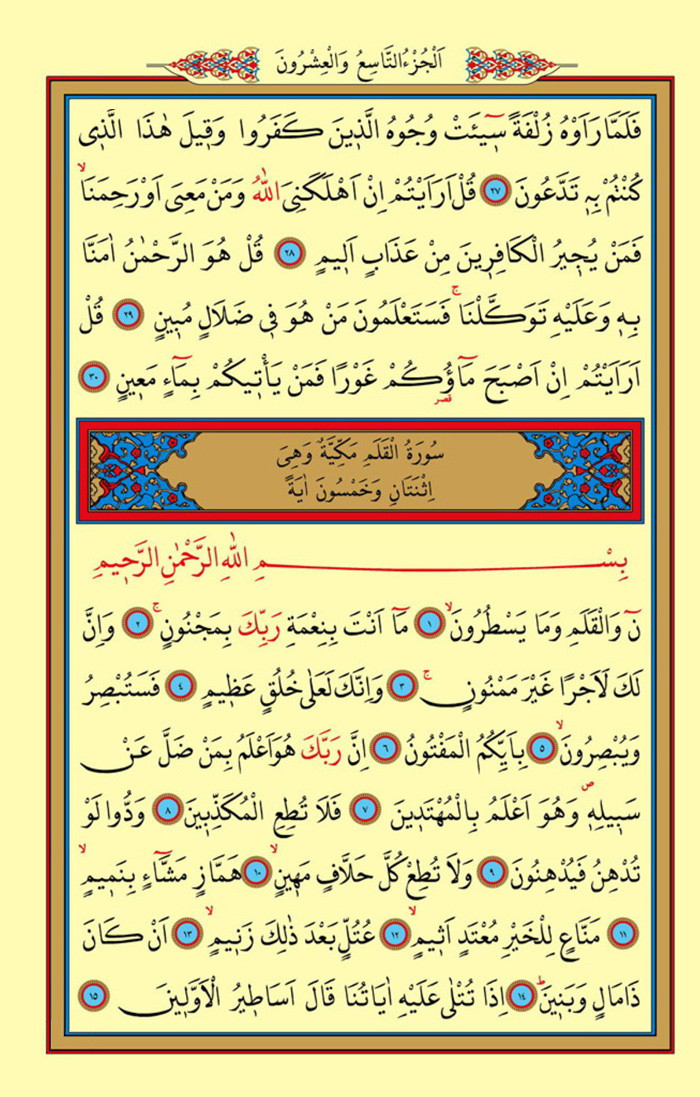 اَلْجُزْءُ التَّاسِعُ وَالْعِشْرُونَ
فَلَمَّا رَاَوْهُ زُلْفَةً سٖٓيئَتْ وُجُوهُ الَّذٖينَ كَفَرُوا وَقٖيلَ هٰذَا الَّذٖى
كُنْتُمْ بِهٖ تَدَّعُونَ ٢٧ قُلْ اَرَاَيْتُمْ اِنْ اَهْلَكَنِىَ اللّٰهُ وَمَنْ مَعِىَ اَوْ رَحِمَنَاۙ
فَمَنْ يُجٖيرُ الْكَافِرٖينَ مِنْ عَذَابٍ اَلٖيمٍ ٢٨ قُلْ هُوَ الرَّحْمٰنُ اٰمَنَّا
بِهٖ وَعَلَيْهِ تَوَكَّلْنَاۚ فَسَتَعْلَمُونَ مَنْ هُوَ فٖى ضَلَالٍ مُبٖينٍ ٢٩ قُلْ
اَرَاَيْتُمْ اِنْ اَصْبَحَ مَٓاؤُ۬كُمْ غَوْرًا فَمَنْ يَأْتٖيكُمْ بِمَٓاءٍ مَعٖينٍ ٣٠
قصر
سُورَةُ الْقَلَمِ مَكِّيَّةٌ وَهِىَ
اِثْنَتَانِ وَخَمْسُونَ اٰيَةً
بِسْمِ اللّٰهِ الرَّحْمٰنِ الرَّحٖيمِ
نٓ وَالْقَلَمِ وَمَا يَسْطُرُونَۙ ١ مَٓا اَنْتَ بِنِعْمَةِ رَبِّكَ بِمَجْنُونٍۚ ٢ وَاِنَّ
لَكَ لَاَجْرًا غَيْرَ مَمْنُونٍۚ ٣ وَاِنَّكَ لَعَلٰى خُلُقٍ عَظٖيمٍ ٤ فَسَتُبْصِرُ
وَيُبْصِرُونَۙ ٥ بِاَيِّكُمُ الْمَفْتُونُ ٦ اِنَّ رَبَّكَ هُوَ اَعْلَمُ بِمَنْ ضَلَّ عَنْ
سَبٖيلِهٖࣕ وَهُوَ اَعْلَمُ بِالْمُهْتَدٖينَ ٧ فَلَا تُطِعِ الْمُكَذِّبٖينَ ٨ وَدُّوا لَوْ
تُدْهِنُ فَيُدْهِنُونَ ٩ وَلَا تُطِعْ كُلَّ حَلَّافٍ مَهٖينٍۙ ١٠ هَمَّازٍ مَشَّٓاءٍ بِنَمٖيمٍۙ
١١ مَنَّاعٍ لِلْخَيْرِ مُعْتَدٍ اَثٖيمٍۙ ١٢ عُتُلٍّ بَعْدَ ذٰلِكَ زَنٖيمٍۙ ١٣ اَنْ كَانَ
ذَا مَالٍ وَبَنٖينَؕ ١٤ اِذَا تُتْلٰى عَلَيْهِ اٰيَاتُنَا قَالَ اَسَاطٖيرُ الْاَوَّلٖينَ ١٥